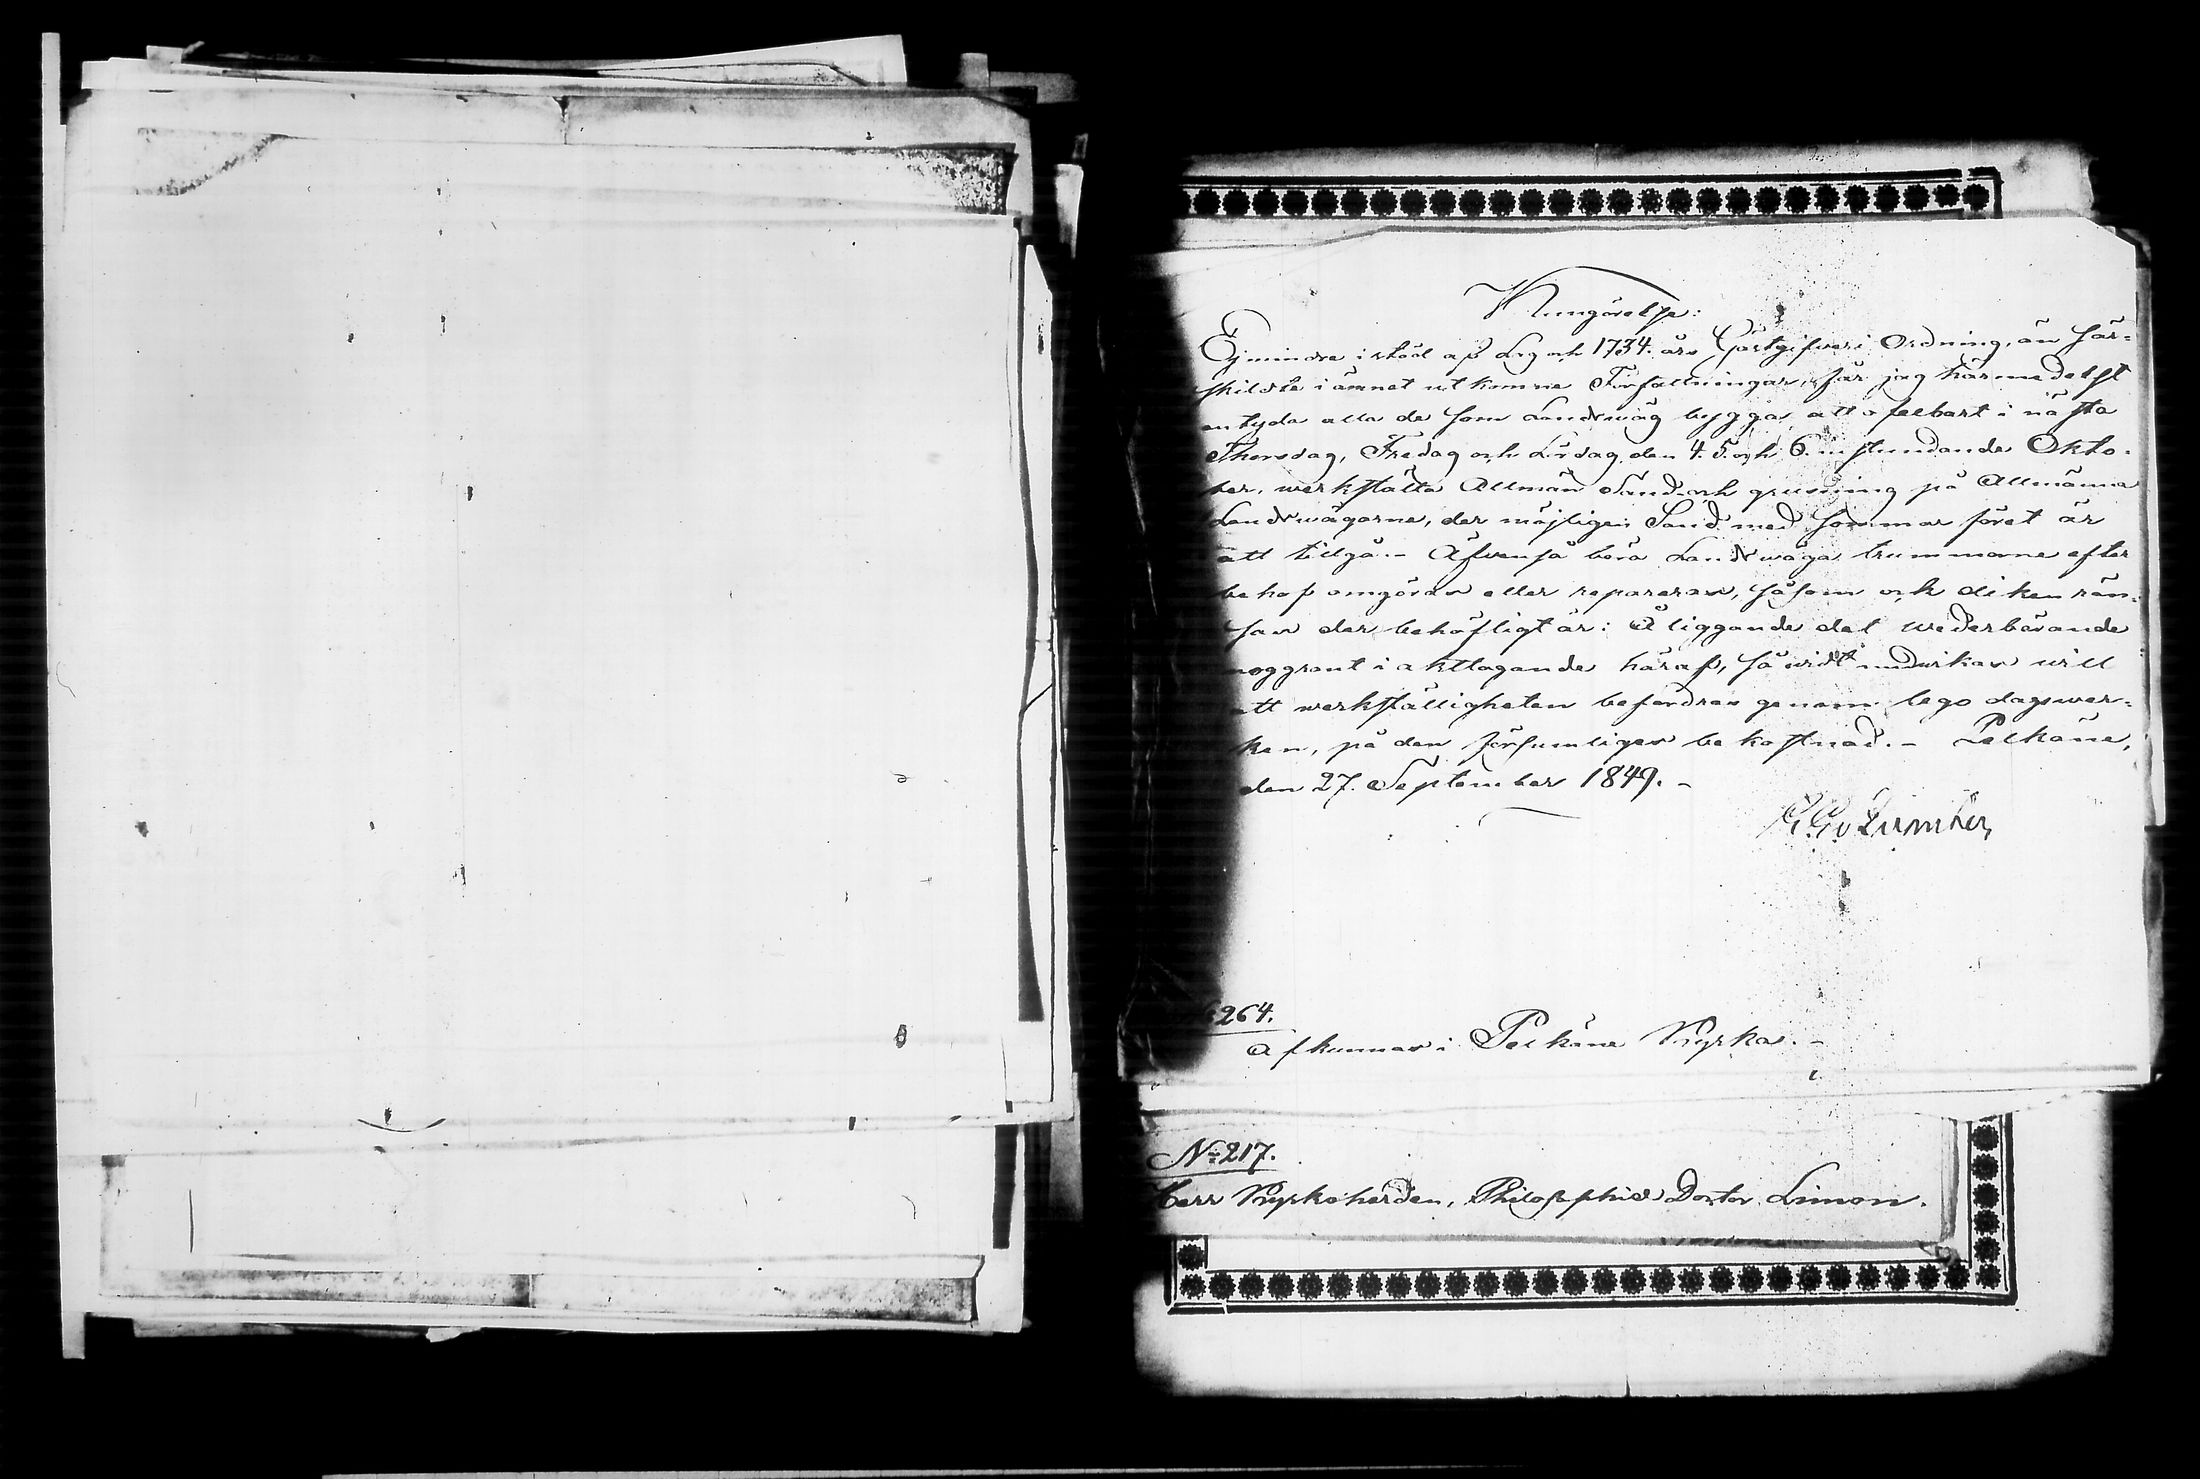 Kungörelse:
Ej mindre i stöd af Lag och 1734. års Gästgifveri Ordning, än sär-
skildte i ämnet utkomne Författningar, får jag härmedelst
antyda alla de som Landsväg bygga, att ofelbart i nästa
Thorsdag, Fredag och Lördag, den 4. 5. och 6. instundande Okto-
ber, werkställa Allmän Sand och grusning på Allmänna
Landswägarne, der möjligen Sand med sommar föret är
att tillgå. - Äfvenså böra Landswäga trummorne efter
behof omgöras eller repareras, såsom och diken rän-
sas der behöfligt är: Åliggande det wederbörande
noggrant iakttagande häraf, så vidt undvikas will
att werkställigheten befordras genom lego dagswer-
ken, på den försumliges bekostnad. - Pelkäne,
den 27. September 1849. -
264.
Afkunnas i Pelkäne Kyrka. -
No 217.
Herr Kyrkoherden, Philosophie Doctor Limon.